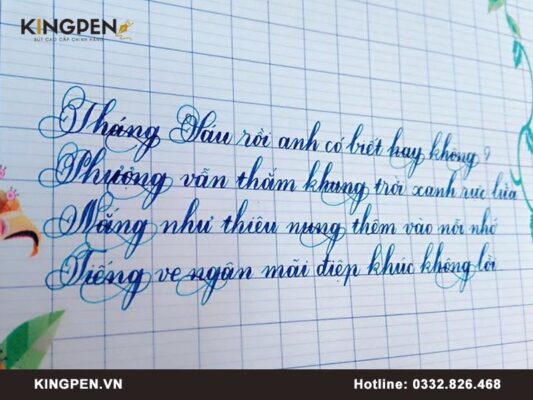 KINGPEN
BÚT CAO CẤP CHÍNH HÃNG
Tháng Sáu rồi anh có biết hay không?
Phượng vẫn thắm khung trời xanh rực lửa
Nắng như thiêu nung thêm vào nỗi nhớ
Tiếng ve ngân mãi điệp khúc không lời
KINGPEN.VN
Hotline: 0332.826.468